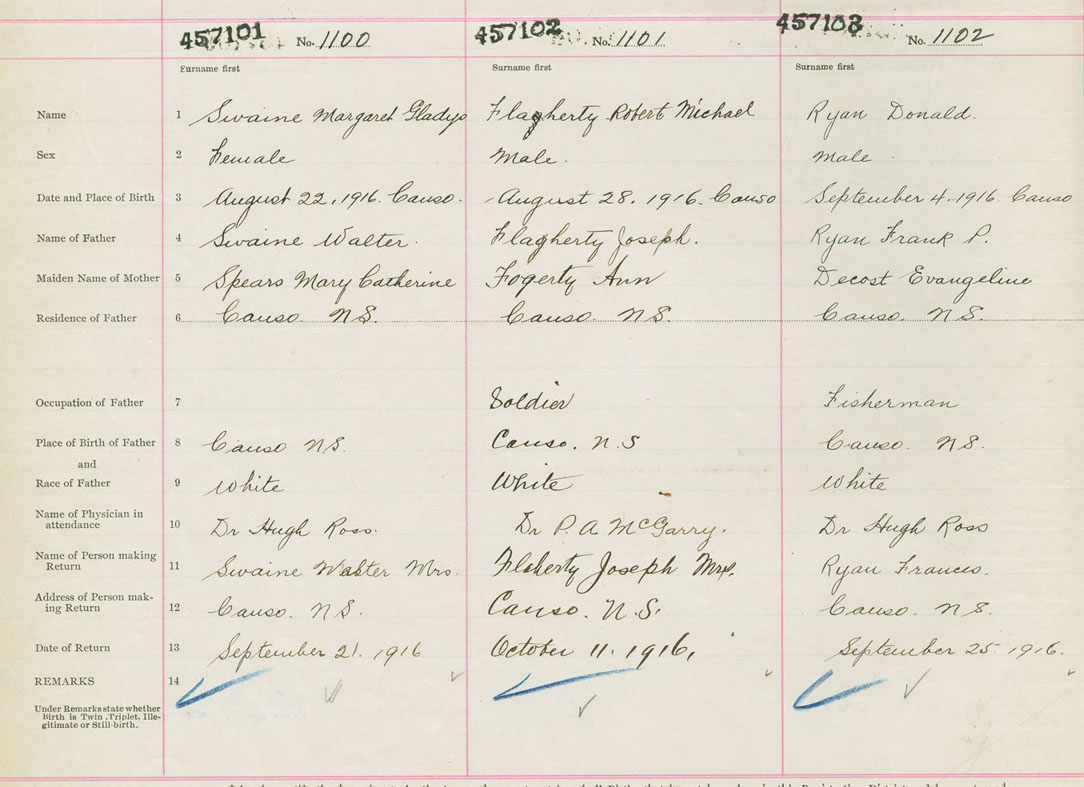 457101 No. 1100 457102 No. 1101 457103 No. 1102
Surname first Surname first Surname first
Name 1 Swaine Margaret Gladys Flagherty Robert Michael Ryan Donald.
Sex 2 Female Male. Male.
Date and Place of Birth 3 August 22, 1916. Canso. August 28, 1916. Canso September 4. 1916. Canso
Name of Father 4 Swaine Walter. Flagherty Joseph. Ryan Frank P.
Maiden Name of Mother 5 Spears Mary Catherine Fogerty Ann Decost Evangeline
Residence of Father 6 Canso. N.S. Canso. N.S. Canso. N.S.
Occupation of Father 7 Soldier Fisherman
Place of Birth of Father 8 Canso N.S. Canso. N.S Canso. N.S.
and
Race of Father 9 White White White
Name of Physician in
attendance 10 Dr Hugh Ross. Dr P. A. McGarry. Dr Hugh Ross
Name of Person making
Return 11 Swaine Walter Mrs. Flaherty Joseph Mrs. Ryan Frances.
Address of Person mak-
ing Return 12 Canso. N.S. Canso. N.S. Canso. N.S.
Date of Return 13 September 21. 1916 October 11. 1916. September 25. 1916.
REMARKS 14
Under Remarks state whether
Birth is Twin, Triplet, Ille-
gitimate or Still-birth.